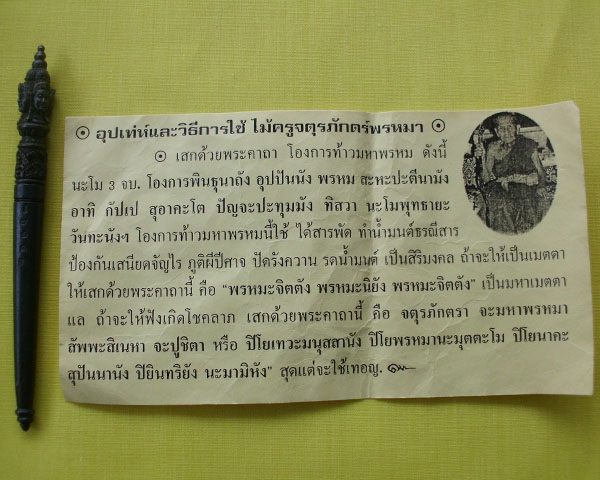 ๏ อุปเท่ห์และวิธีการใช้ ไม้ครูจตุรภักตร์พรหมา ๏
๏ เสกด้วยพระคาถา โองการท้าวมหาพรหม ดังนี้
นะโม 3 จบ. โองการพินธุนาถัง อุปปันนัง พรหม สะหะปะตีนามัง
อาทิ กัปเป สุอาคะโต ปัญจะปะทุมมัง ทิสวา นะโมพุทธายะ
วันทะนังฯ โองการท้าวมหาพรหมนี้ใช้ ได้สารพัด ทำน้ำมนต์ธรณีสาร
ป้องกันเสนียดจัญไร ภูติผีปีศาจ ปัดรังควาน รดน้ำมนต์ เป็นสิริมงคล ถ้าจะให้เป็นเมตตา
ให้เสกด้วยพระคาถานี้ คือ "พรหมะจิตตัง พรหมะนิยัง พรหมะจิตตัง" เป็นมหาเมตตา
แล ถ้าจะให้ฟังเกิดโชคลาภ เสกด้วยพระคาถานี้ คือ จตุรภักตรา จะมหาพรหมา
สัพพะสิเนหา จะปูชิตา หรือ ปิโยเทวะมนุสสานัง ปิโยพรหมานะมุตตะโม ปิโยนาคะ
สุปันนานัง ปิยินทริยัง นะมามิหัง" สุดแต่จะใช้เทอญ. ๛